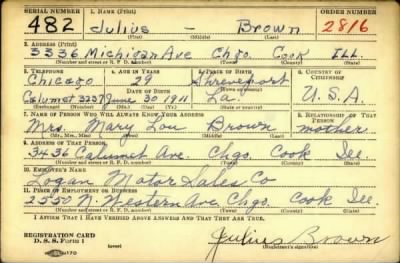 SERIAL NUMBER 1. NAME (Print) ORDER NUMBER
482 Julius - Brown 2816
(First) (Middle) (Last)
2. ADDRESS (Print)
3336 Michigan Ave Chgo. Cook ILL.
(Number and street or R. F. D. number) (Town) (County) (State)
3. TELEPHONE 4. AGE IN YEARS 5. PLACE OF BIRTH 6. COUNTRY OF CITIZENSHIP
Chicago 29 Shreveport
DATE OF BIRTH (Town or county)
Calumet 3237 June 30 1911 La. U.S.A.
(Exchange) (Number) (Mo.) (Day) (Yr.) (State or country)
7. NAME OF PERSON WHO WILL ALWAYS KNOW YOUR ADDRESS 8. RELATIONSHIP OF THAT PERSON
Mrs. Mary Lou Brown mother
(Mr., Mrs., Miss) (First) (Middle) (Last)
9. ADDRESS OF THAT PERSON
3436 Calumet Ave. Chgo. Cook Ill.
(Number and street or R. F. D. number) (Town) (County) (State)
10. EMPLOYER'S NAME
Logan Motor Sales Co
11. PLACE OF EMPLOYMENT OR BUSINESS
2550 N. Western Ave. Chgo. Cook Ill.
(Number and street or R. F. D. number) (Town) (County) (State)
I AFFIRM THAT I HAVE VERIFIED ABOVE ANSWERS AND THAT THEY ARE TRUE.
REGISTRATION CARD
D. S. S. Form 1 (over) Julius Brown
(Registrant's signature)